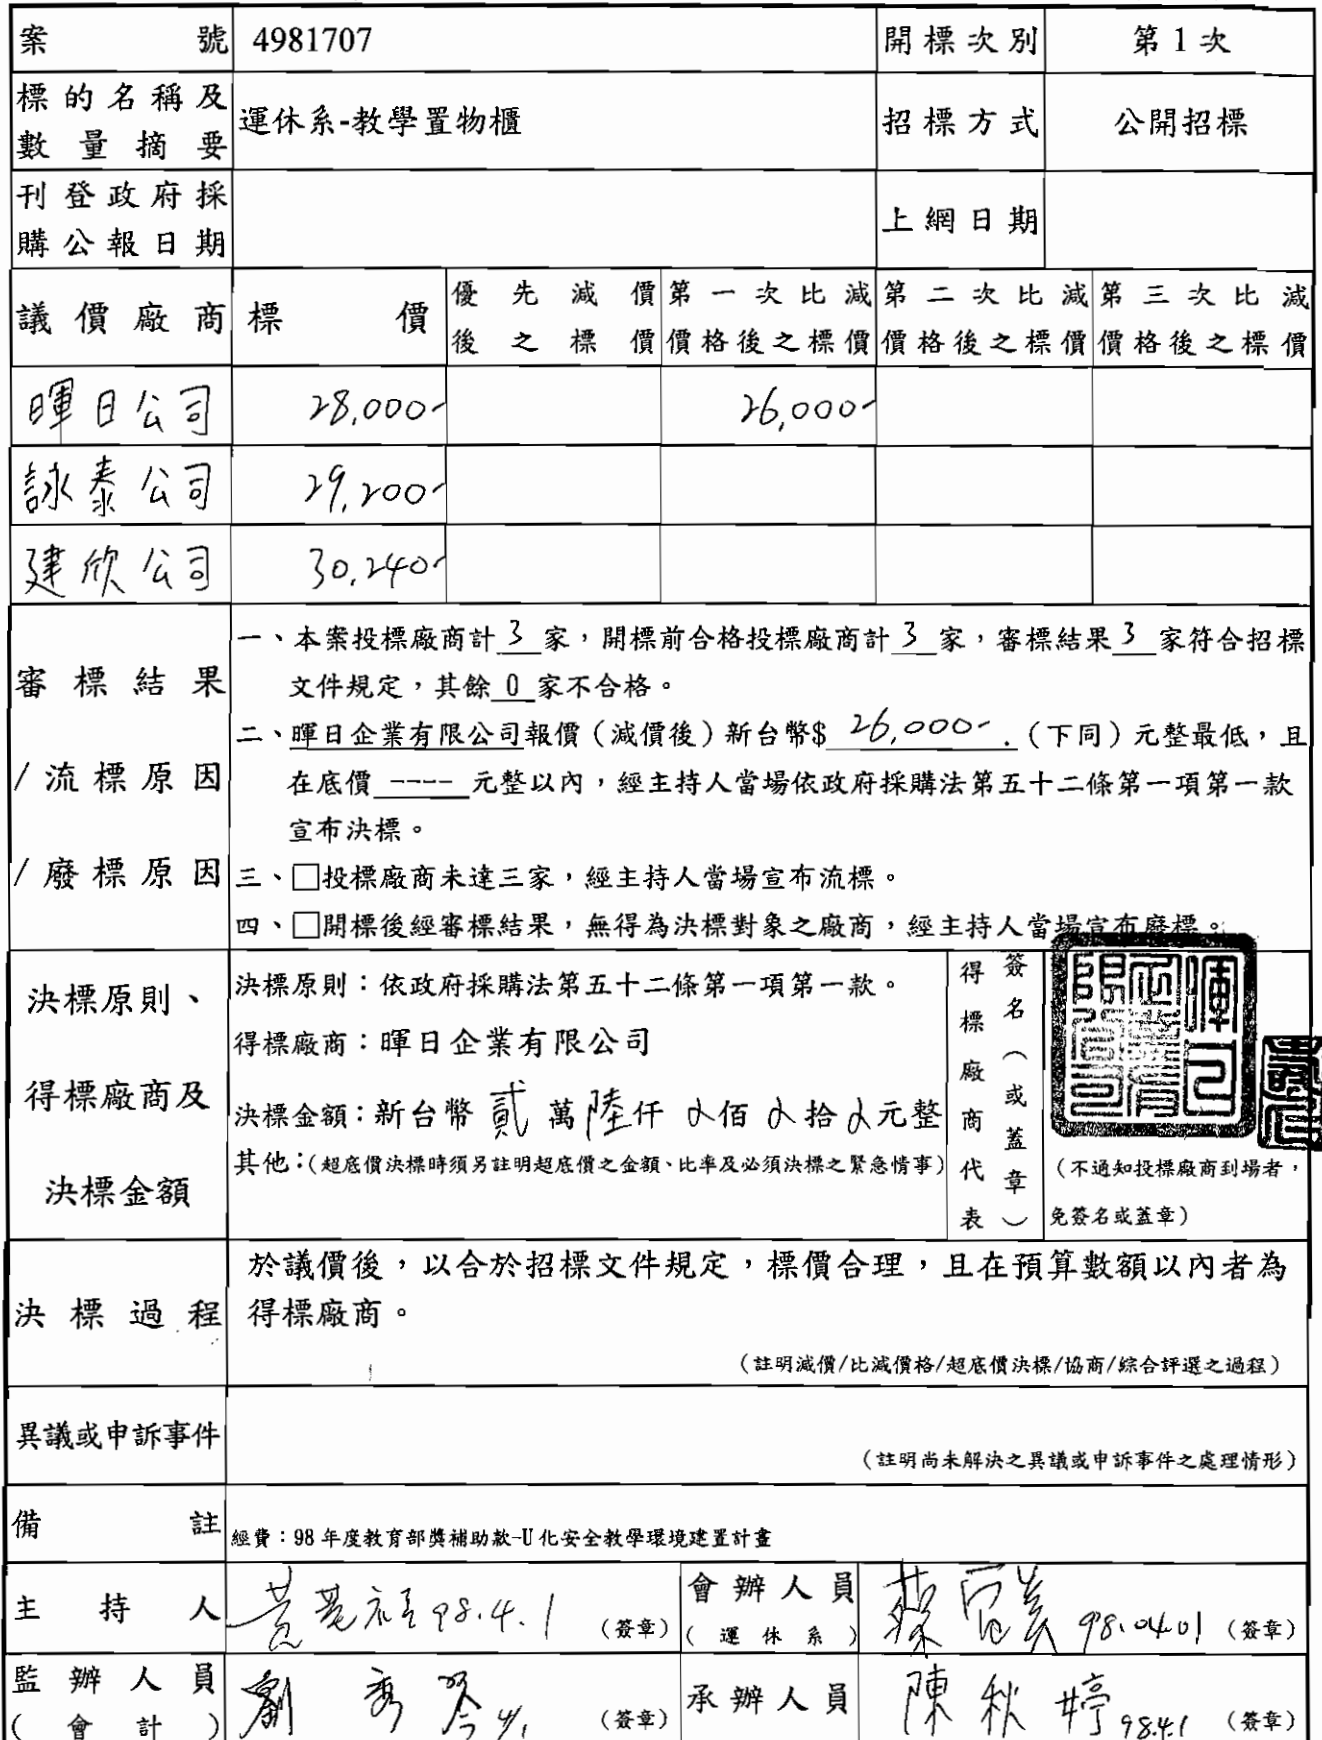 案號 4981707 開標次別 第1次
標的名稱及數量摘要 運休系-教學置物櫃 招標方式 公開招標
刊登政府採購公報日期 上網日期
議價廠商 標價 優先減價後之標價 第一次比減價格後之標價 第二次比減價格後之標價 第三次比減價格後之標價
暉日公司 28,000- 26,000-
詠泰公司 29,200-
建欣公司 30,240-
審標結果
/流標原因
/廢標原因
一、本案投標廠商計 3 家,開標前合格投標廠商計 3 家,審標結果 3 家符合招標
文件規定,其餘 0 家不合格。
二、暉日企業有限公司報價(減價後)新台幣$ 26,000- .(下同)元整最低,且
在底價 ---- 元整以內,經主持人當場依政府採購法第五十二條第一項第一款
宣布決標。
三、□投標廠商未達三家,經主持人當場宣布流標。
四、□開標後經審標結果,無得為決標對象之廠商,經主持人當場宣布廢標。
決標原則、
得標廠商及
決標金額
決標原則:依政府採購法第五十二條第一項第一款。
得標廠商:暉日企業有限公司
決標金額:新台幣 貳 萬 陸 仟 佰 拾 元整
其他:(超底價決標時須另註明超底價之金額、比率及必須決標之緊急情事)
得標廠商代表
簽名(或蓋章)
(不通知投標廠商到場者,
免簽名或蓋章)
決標過程
於議價後,以合於招標文件規定,標價合理,且在預算數額以內者為
得標廠商。
(註明減價/比減價格/超底價決標/協商/綜合評選之過程)
異議或申訴事件
(註明尚未解決之異議或申訴事件之處理情形)
備註 經費:98 年度教育部獎補助款-U 化安全教學環境建置計畫
主持人 98.4.1 (簽章) 會辦人員(運休系) 98.04.01 (簽章)
監辦人員(會計) 劉秀琴 4/1 (簽章) 承辦人員 陳秋婷 98.4.1 (簽章)